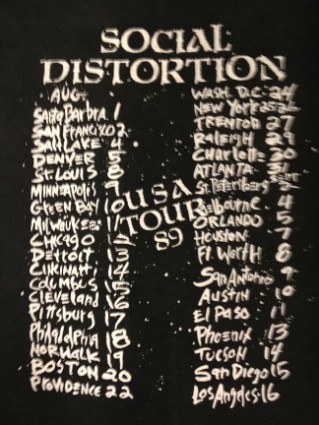 SOCIAL
DISTORTION
AUG.
Santa Barbra 1
SAN FRANCIXO 2
SALT LAKE 4
DENVER 5
ST. LOUIS 8
MINNEAPOLIS 9
GREEN BAY 10
MILWAUKEE 11
CHICAGO 12
DETROIT 13
CINCINNATI 14
COLUMBUS 15
CLEVELAND 16
PITTSBURG 17
PHILADALPHIA 18
NORWALK 19
BOSTON 20
PROVIDENCE 22
USA
TOUR
89
WASH. D.C. 24
NEW YORK 25
TRENTON 27
RALEIGH 29
Charlotte 30
ATLANTA 31
SEPT
St. Petersberg 2
Melbourne 4
ORLANDO 5
Houston 7
Ft. Worth 8
San Antonio 9
AUSTIN 10
El PASO 11
PHOENIX 13
TUCSON 14
San Diego 15
Los Angeles 16